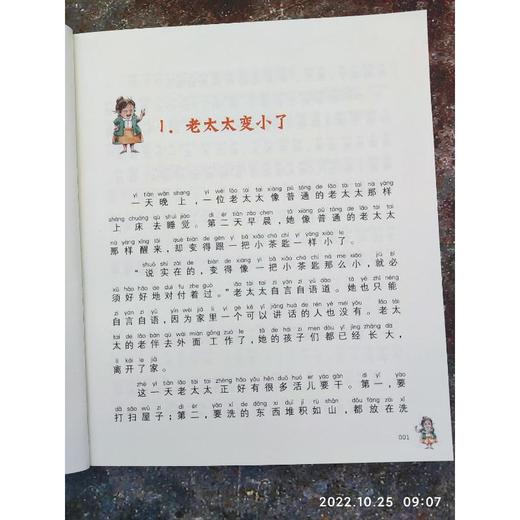 1. 老太太变小了
yì tiān wǎn shang yí wèi lǎo tài tai xiàng pǔ tōng de lǎo tài tai nà yàng
一天晚上,一位老太太像普通的老太太那样
shàng chuáng qù shuì jiào dì èr tiān zǎo chen tā xiàng pǔ tōng de lǎo tài tai
上床去睡觉。第二天早晨,她像普通的老太太
nà yàng xǐng lái què biàn de gēn yì bǎ xiǎo chá chí yí yàng xiǎo le
那样醒来,却变得跟一把小茶匙一样小了。
shuō shí zài de biàn de xiàng yì bǎ xiǎo chá chí nà me xiǎo jiù bì
“说实在的,变得像一把小茶匙那么小,就必
xū hǎo hǎo de duì fu zhe guò lǎo tài tai zì yán zì yǔ dào tā yě zhǐ néng
须好好地对付着过。”老太太自言自语道。她也只能
zì yán zì yǔ yīn wèi jiā li yí gè kě yǐ jiǎng huà de rén yě méi yǒu lǎo tài
自言自语,因为家里一个可以讲话的人也没有。老太
tai de lǎo bàn qù wài miàn gōng zuò le tā de hái zi men dōu yǐ jīng zhǎng dà
太的老伴去外面工作了,她的孩子们都已经长大,
lí kāi le jiā
离开了家。
zhè yì tiān lǎo tài tai zhèng hǎo yǒu hěn duō huór yào gàn dì yī yào
这一天老太太正好有很多活儿要干。第一,要
dǎ sǎo wū zi dì èr yào xǐ de dōng xi duī jī rú shān dōu fàng zài xǐ
打扫屋子;第二,要洗的东西堆积如山,都放在洗
001
2022.10.25 09:07